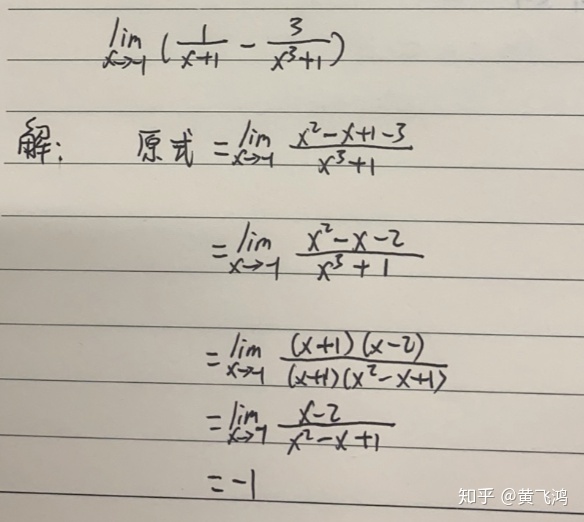 lim x→-1 (1/(x+1) - 3/(x³+1))
解: 原式 = lim x→-1 (x²-x+1-3)/(x³+1)
= lim x→-1 (x²-x-2)/(x³+1)
= lim x→-1 (x+1)(x-2)/((x+1)(x²-x+1))
= lim x→-1 (x-2)/(x²-x+1)
= -1
知乎 @黄飞鸿